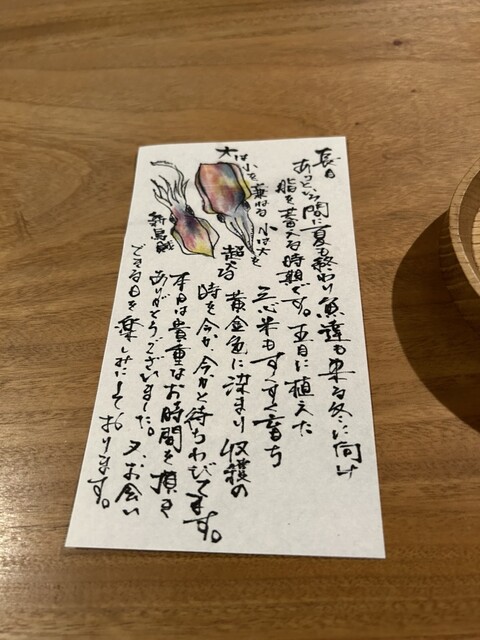 長月
あっという間に夏も終わり魚達も来る冬に向け
脂を蓄える時期です。五月に植えた
三心米もすくすく育ち
黄金色に染まり収穫の
時を今か今かと待ちわびてます。
本日は貴重なお時間を頂き
ありがとうございました。又、お会い
できる日を楽しみにしております。
大は小を兼ねる 小は大を
越える
新烏賊